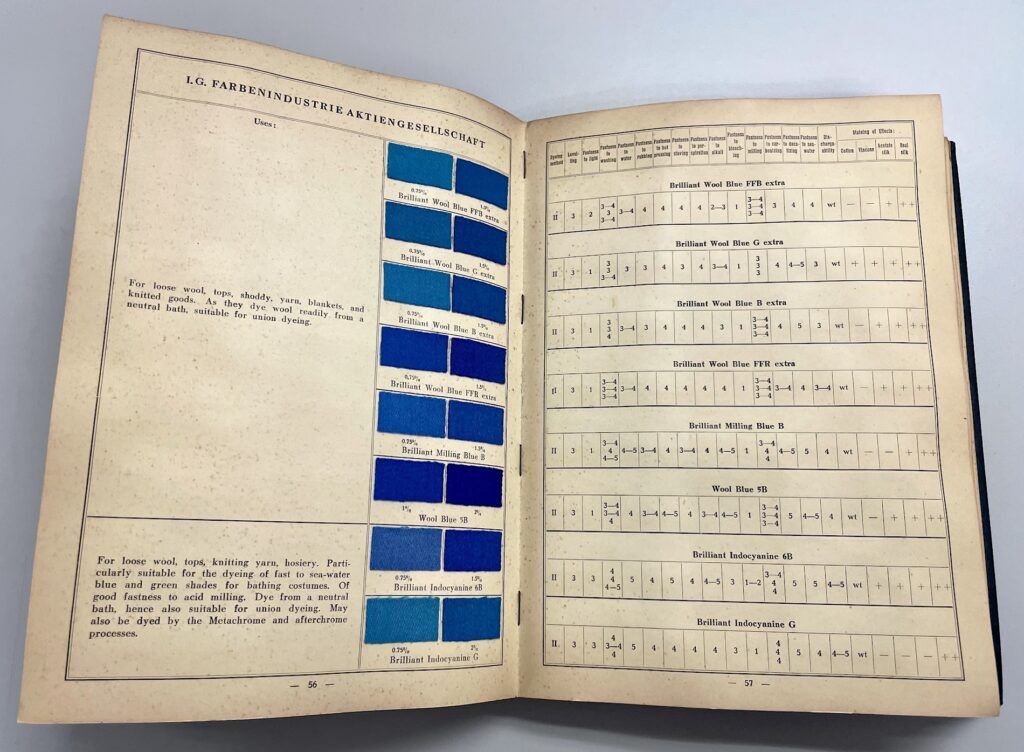 I.G. FARBENINDUSTRIE AKTIENGESELLSCHAFT
Uses:
For loose wool, tops, shoddy, yarn, blankets, and
knitted goods. As they dye wool readily from a
neutral bath, suitable for union dyeing.
For loose wool, tops, knitting yarn, hosiery. Parti-
cularly suitable for the dyeing of fast to sea-water
blue and green shades for bathing costumes. Of
good fastness to acid milling. Dye from a neutral
bath, hence also suitable for union dyeing. May
also be dyed by the Metachrome and afterchrome
processes.
0.75% 1.5%
Brilliant Wool Blue FFB extra
0.75% 1.5%
Brilliant Wool Blue G extra
0.75% 1.5%
Brilliant Wool Blue B extra
0.75% 1.5%
Brilliant Wool Blue FFR extra
0.75% 1.5%
Brilliant Milling Blue B
1% 2%
Wool Blue 5B
0.75% 1.5%
Brilliant Indocyanine 6B
0.75% 2%
Brilliant Indocyanine G
— 56 —
Dyeing method Level-ling Fastness to light Fastness to washing Fastness to water Fastness to rubbing Fastness to hot pressing Fastness to stoving Fastness to per-spiration Fastness to alkali Fastness to bleach-ing Fastness to milling Fastness to car-bonizing Fastness to deca-tizing Fastness to sea-water Dis-charge-ability Staining of Effects: Cotton Viscose Acetate silk Real silk
Brilliant Wool Blue FFB extra
3—4 3—4
II 3 2 3 3—4 4 4 4 4 2—3 1 3—4 3 4 4 wt — — + ++
3—4 3—4
Brilliant Wool Blue G extra
3 3
II 3 1 3 3 3 4 3 4 3—4 1 3 4 4—5 3 wt + + + ++
3—4 3
Brilliant Wool Blue B extra
3 3—4
II 3 1 3 3—4 3 4 4 4 3 1 3—4 4 5 3 wt — + + ++
4 3—4
Brilliant Wool Blue FFR extra
3—4 3—4
II 3 1 3—4 3—4 4 4 4 4 4 1 3—4 3—4 4 3—4 wt — + + ++
3—4 3—4
Brilliant Milling Blue B
3—4 3—4
II 3 1 4 4—5 3—4 4 3—4 4—5 4—5 1 4 4—5 5 4 wt — — + ++
4—5 4
Wool Blue 5B
3—4 3—4
II 3 1 3—4 4 3—4 4—5 4 3—4 4—5 1 3—4 5 4—5 4 wt — + + ++
4 3—4
Brilliant Indocyanine 6B
4 3—4
II 3 3 4 5 4 5 4 4—5 3 1—2 4 5 5 4—5 wt + + + ++
4—5 4
Brilliant Indocyanine G
4 4
II 3 3 3—4 5 4 4 4 4 3 1 4 5 4 4—5 wt — — — ++
4 4
— 57 —